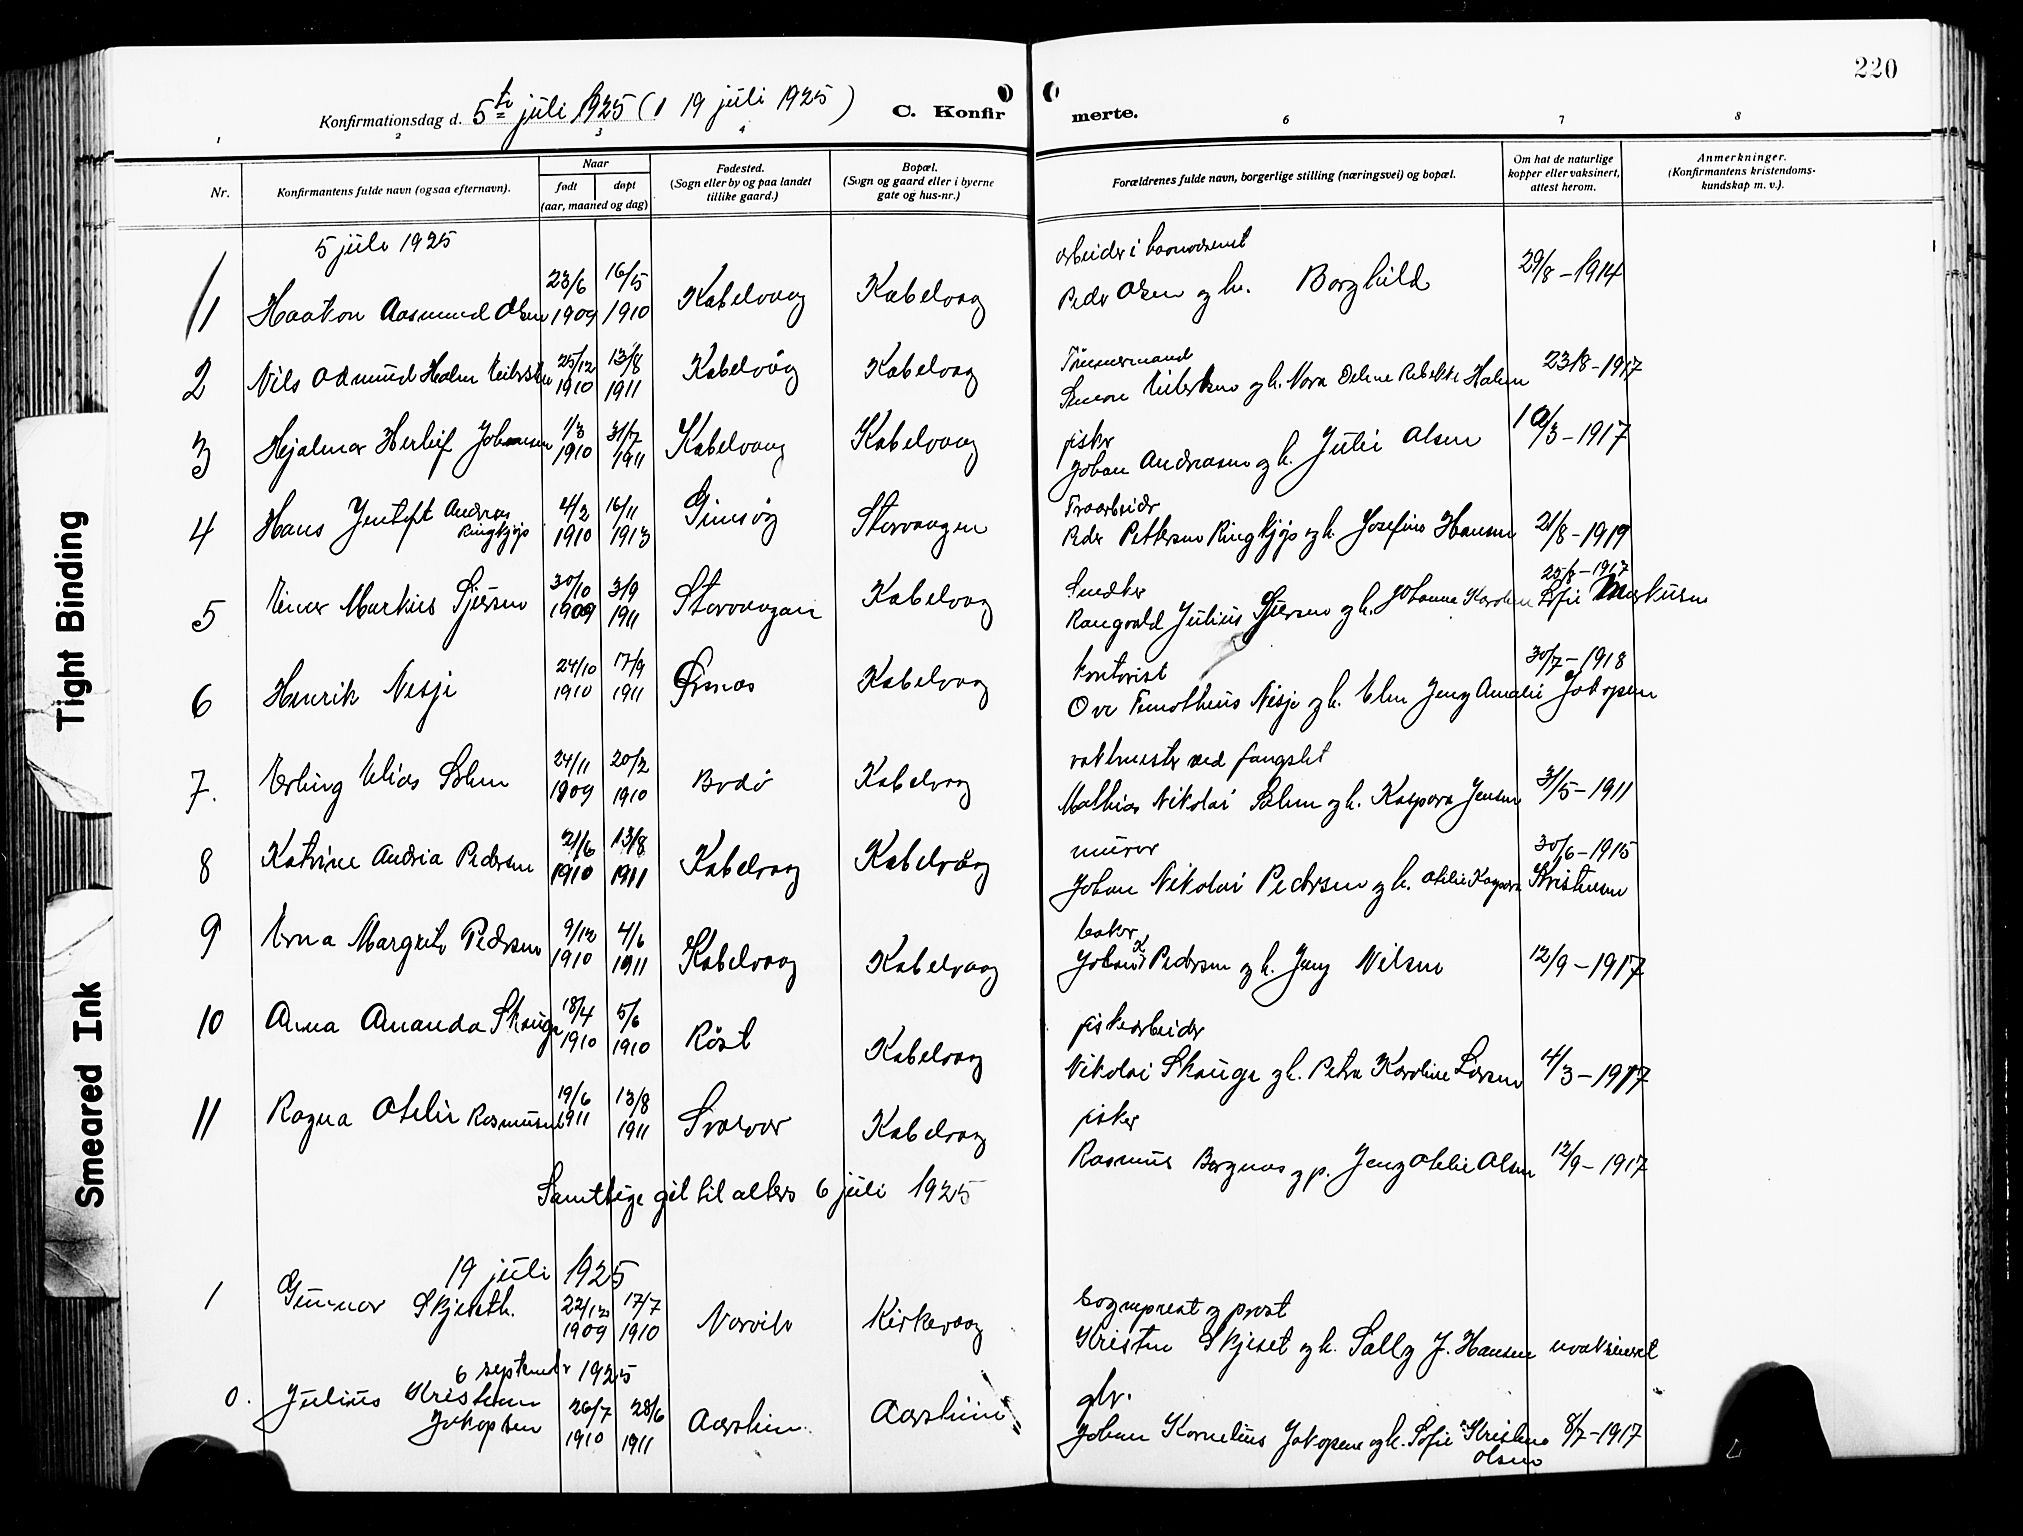 220
Konfirmationsdag d. 5te juli 1925 ( 19 juli 1925 )
C. Konfirmerte.
1 2 3 4 6 7 8
Nr.
Konfirmantens fulde navn (ogsaa efternavn).
Naar
født døpt
(aar, maaned og dag)
Fødested.
(Sogn eller by og paa landet
tillike gaard.)
Bopæl.
(Sogn og gaard eller i byerne
gate og hus-nr.)
Forældrenes fulde navn, borgerlige stilling (næringsvei) og bopæl.
Om hat de naturlige
kopper eller vaksinert,
attest herom.
Anmerkninger.
(Konfirmantens kristendoms-
kundskap m. v.).
5 juli 1925
1 Haakon Aasmund Olsen 23/6 1909 16/5 1910 Kabelvaag Kabelvaag
arbeider i havnevæsenet
Peder Olsen og h. Borghild 29/8 – 1914
2 Nils Odmund Holm Eilertsen 25/12 1910 13/8 1911 Kabelvåg Kabelvaag
Tømmermand
Simon Eilertsen og h. Nora Rebekka Holm 23/8 – 1917
3 Hjalmar Herleif Johansen 1/3 1910 31/7 1911 Kabelvaag Kabelvaag
fisker
Johan Andreasen og h. Julie Olsen 10/3 – 1917
4 Hans Jentoft Andreas Ringkjøp 4/2 1910 16/11 1913 Gimsøy Storvaagen
Peder Pettersen Ringkjøp og h. Josefine Hansen 21/8 – 1919
5 Einar Markus Sjursen 30/10 1909 3/9 1911 Storvaagan Kabelvaag
Snedker
Rangvald Julius Sjursen og h. Johanna Karoline Sofie Markusen 25/8 – 1917
6 Henrik Nesje 24/10 1910 17/9 1911 Ørnes Kabelvaag
kontorist
Ove Timotheus Nesje og h. Elen Jeny Amalie Jakopsen 30/7 – 1918
7. Erling Elias Solem 24/11 1909 20/2 1910 Bodö Kabelvaag
vaktmester ved fængslet
Mathias Nikolai Solem og h. Kaspara Jensen 31/5 – 1911
8 Katrine Andrea Pedersen 21/6 1910 13/8 1911 Kabelvaag Kabelvåg
murer
Johan Nikolai Pedersen og h. Otelie Kaspara Kristensen 30/6 – 1915
9 Erna Margrete Pedersen 9/12 1910 4/6 1911 Kabelvaag Kabelvaag
baker
Johan K Pedersen og h. Jeny Nilsen 12/9 – 1917
10 Anna Amanda Skauge 18/4 1910 5/6 1910 Röst Kabelvaag
fiskearbeider
Nikolai Skauge og h. Petra Karoline Larsen 4/3 – 1917
11 Ragna Otelie Rasmussen 19/6 1911 13/8 1911 Svolvær Kabelvaag
fisker
Rasmus Bergnæs og p. Jeny Otelie Olsen 12/9 – 1917
Samtlige gik til alters 6 juli 1925
19 juli 1925
1 Gunnar Skjeseth. 22/12 1909 17/7 1910 Narvik Kirkevaag
Sogneprest og prost
Kristen Skjeset og h. Sally J. Hansen uvaksineret
6 september 1925
0. Julius Kristian Jakopsen 26/7 1910 28/6 1911 Aarsteinen
gbr.
Johan Kornelius Jakopsen og h. Sofie Kristine Olsen 8/7 – 1917
Tight Binding
Smeared Ink